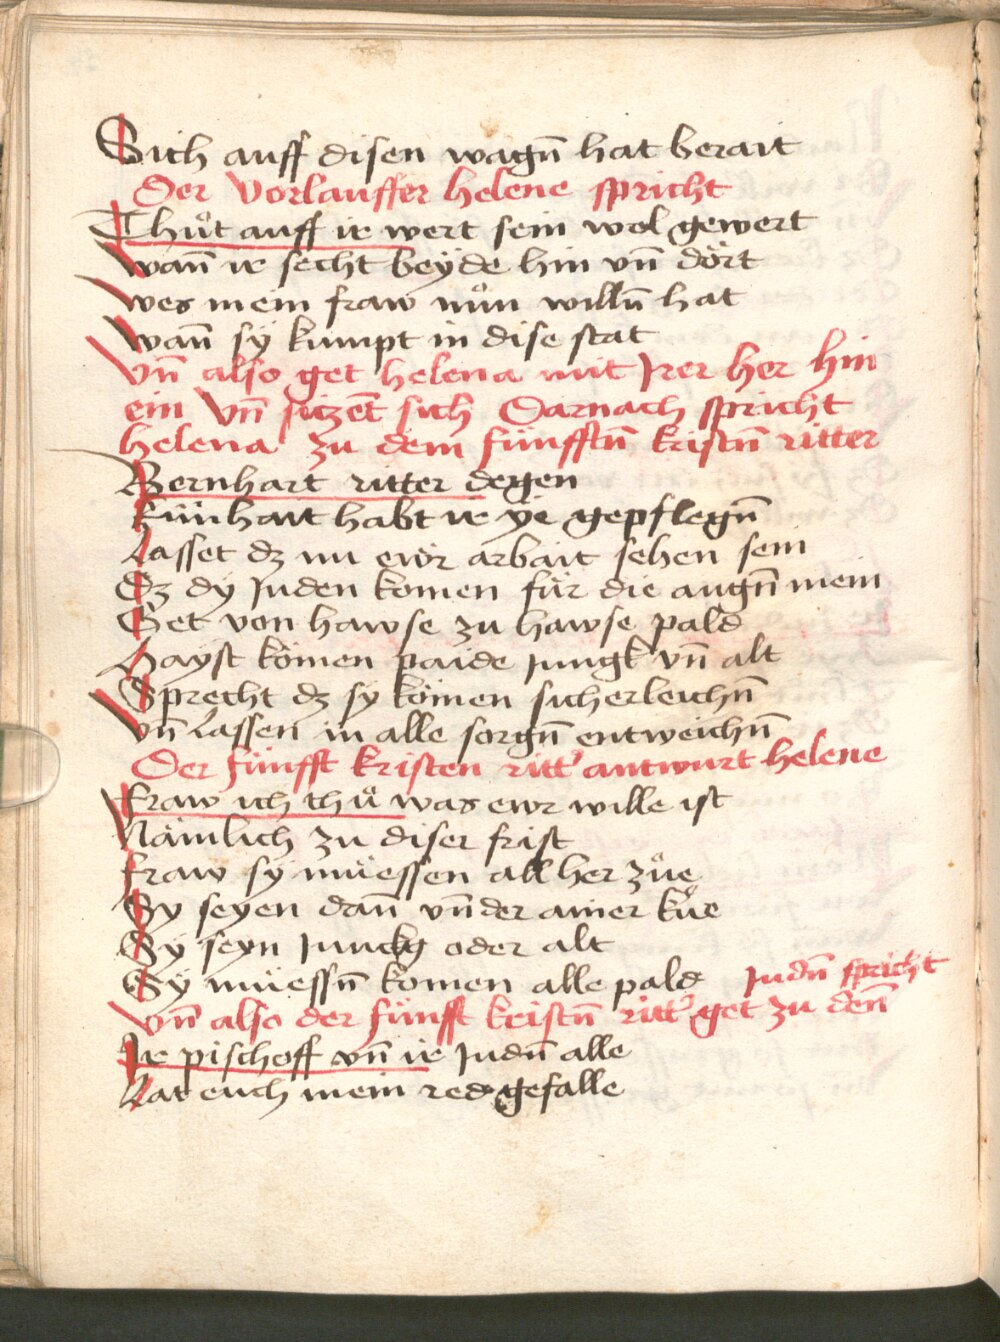 Sich auff disen wagn̄ hat berait
Der Vorlauffer helene spricht
Thuͦt auff ir wert sein wol gewert
wan̄ ir secht beyde hin vn̄ dört
wes mein fraw nuͦn willn̄ hat
wan̄ sÿ kumpt in dise stat
Vn̄ also get helena mit Irer her hin
ein Vn̄ siczēt sich Darnach spricht
helena zu dem fünfftn̄ kristn̄ ritter
Bernhart ritter degen
kűnhait habt ir ye gepflegn̄
Lasset dz nu ewr arbait sehen sein
Dz dÿ Juden komen für die augn̄ mein
Get von hawse zu hawse pald
Hayst kömen paide Jungk vn̄ alt
Sprecht dz sÿ kömen sicherleichn̄
Vn̄ Lassen in alle sorgn̄ entweichn̄
Der fünfft kristen ritt' antwurt helene
fraw ich thuͦ was ewr wille ist
Nämlich zu diser frist
fraw sÿ müessen all her zuͦe
Sy seyen dan̄ vn̄der ainer kuͦe
Sÿ seyn Junckg oder alt
Sÿ müessn̄ komen alle pald Judn̄ spricht
Vn̄ also der fünfft kristn̄ ritt' get zu den̄
Ir pischoff vn̄ ir Judn̄ alle
Lat euch mein red gefalle